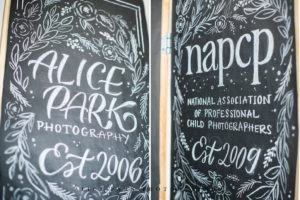 ALICE
PARK
PHOTOGRAPHY
Est 2006
napcp
NATIONAL ASSOCIATION
OF PROFESSIONAL
CHILD PHOTOGRAPHERS
Est 2009